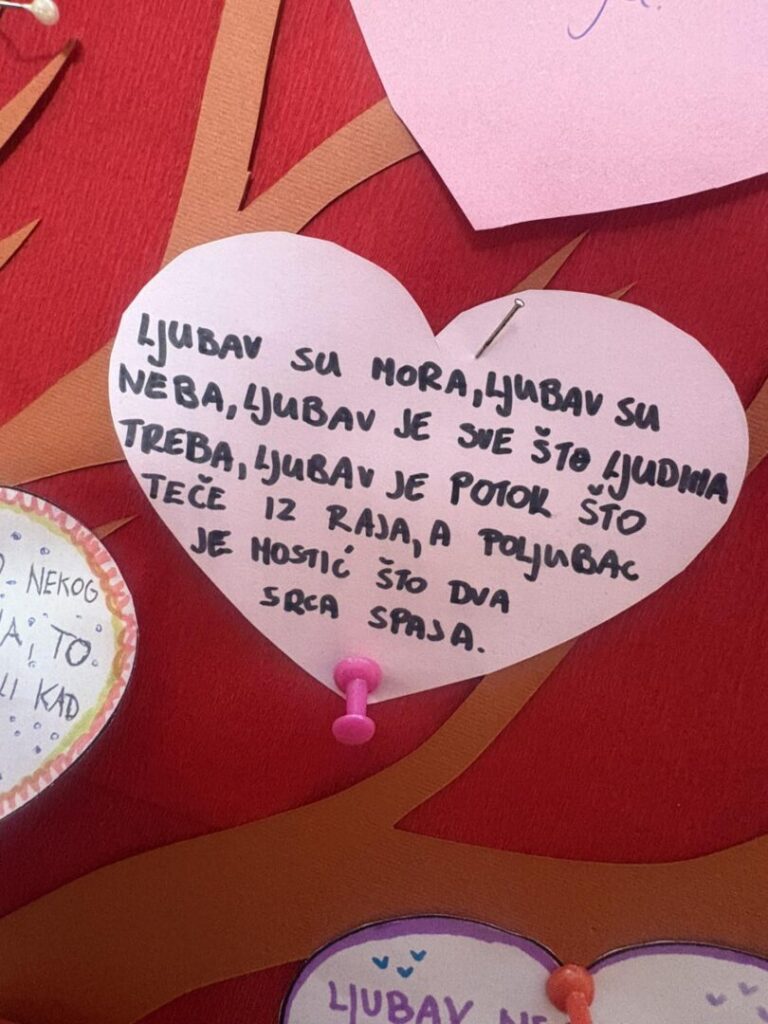 LJUBAV SU MORA, LJUBAV SU
NEBA, LJUBAV JE SVE ŠTO LJUDIMA
TREBA, LJUBAV JE POTOK ŠTO
TEČE IZ RAJA, A POLJUBAC
JE MOSTIĆ ŠTO DVA
SRCA SPAJA.
NEKOG
TO
KAD
LJUBAV NE